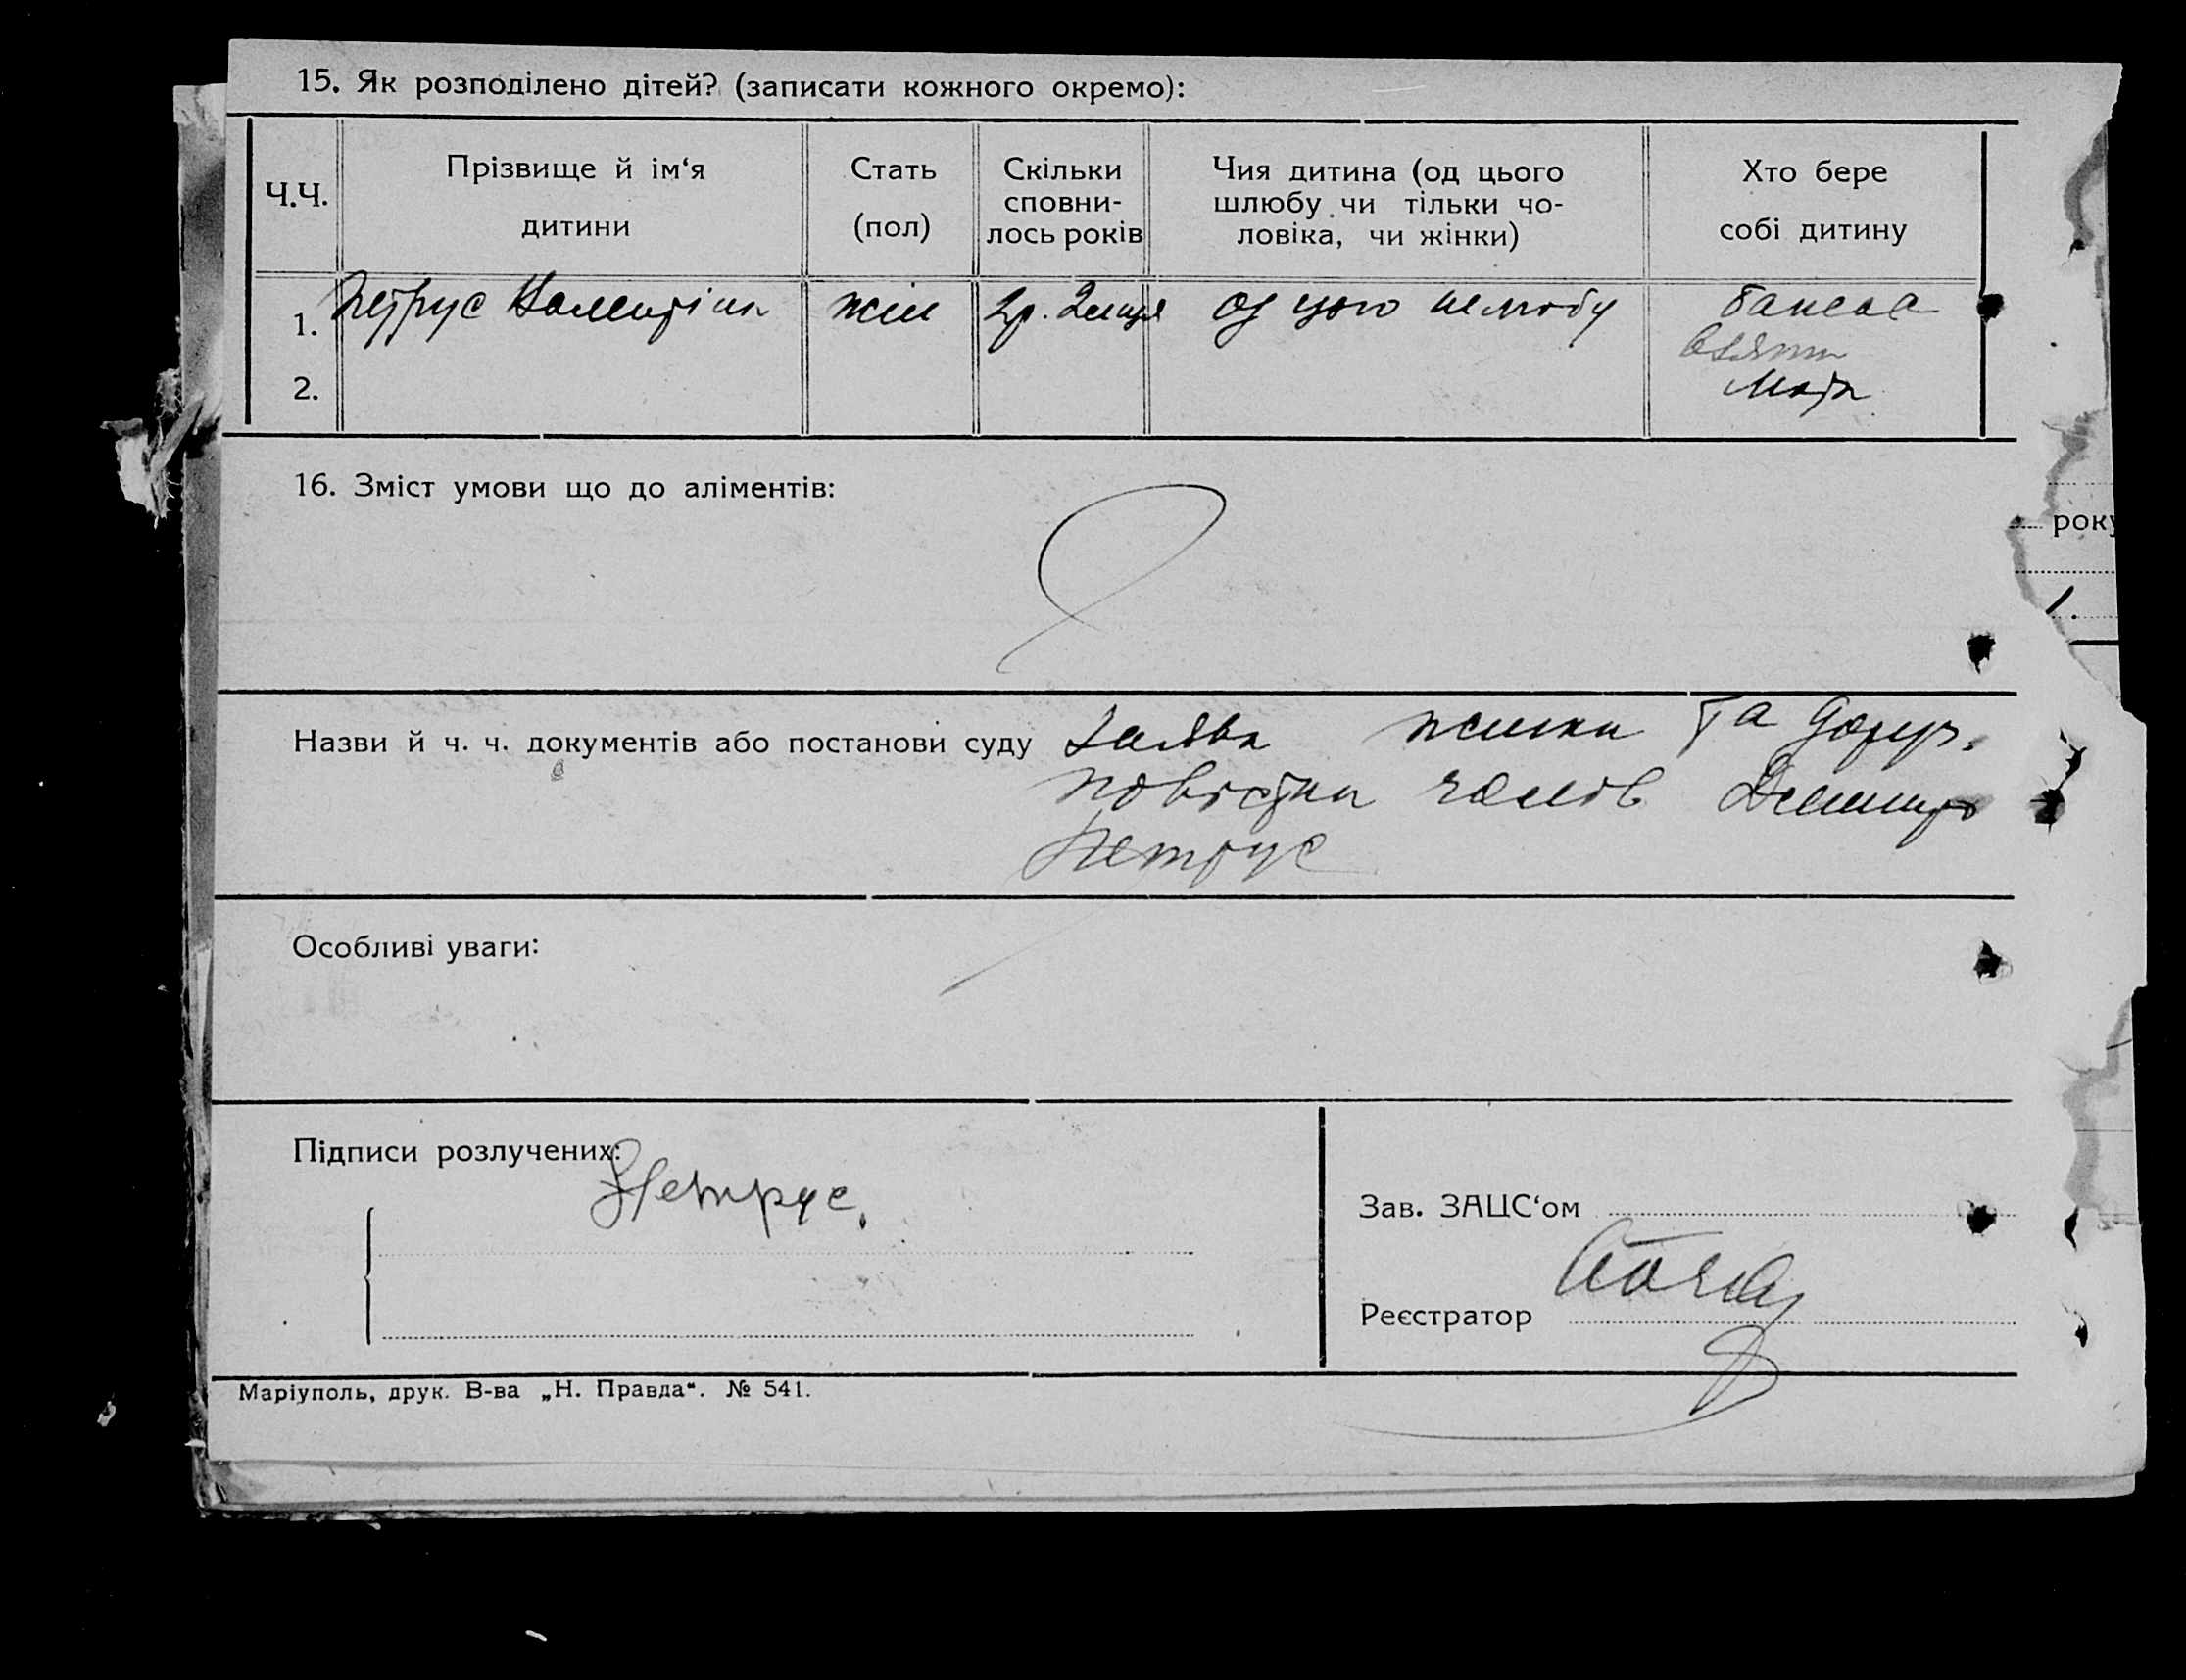 15. Як розподілено дітей? (записати кожного окремо):
Ч.Ч.
Прізвище й ім‘я
дитини
Стать
(пол)
Скільки
сповни-
лось років
Чия дитина (од цього
шлюбу чи тільки чо-
ловіка, чи жінки)
Хто бере
собі дитину
1. Петрус Валентіна жін 2р. 2 місця од цього шлюбу бажає
взяти
2. Мати
16. Зміст умови що до аліментів:
року
Назви й ч. ч. документів або постанови суду Заява жінки та доруч.
повістки чолов Дмитро
Петрус
Особливі уваги:
Підписи розлучених:
Петрус.
Зав. ЗАЦС‘ом
Реєстратор
Маріуполь, друк. В-ва „Н. Правда“. № 541.